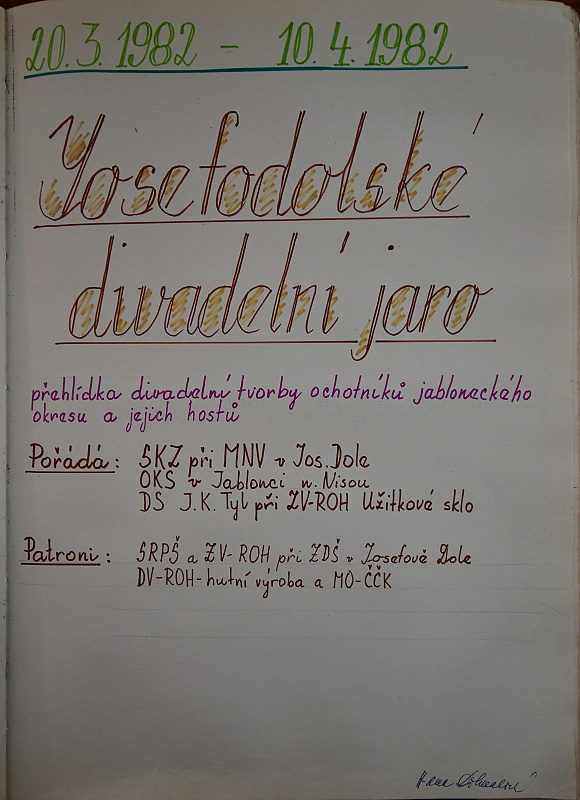 20. 3. 1982 - 10. 4. 1982
Josefodolské
divadelní jaro
přehlídka divadelní tvorby ochotníků jabloneckého
okresu a jejich hostů
Pořádá: SKZ při MNV v Jos. Dole
OKS v Jablonci n. Nisou
DS J. K. Tyl při ZV-ROH Užitkové sklo
Patroni: SRPŠ a ZV-ROH při ZDŠ v Josefově Dole
DV-ROH-hutní výroba a MO-ČČK
Hana